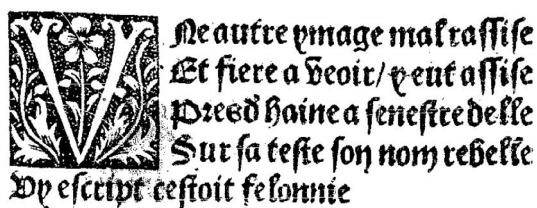 VNe autre ymage mal rassise
Et fiere a veoir/ y eut assise
Pres d haine a senestre delle
Sur sa teste son nom rebelle
Vy escript cestoit felonnie